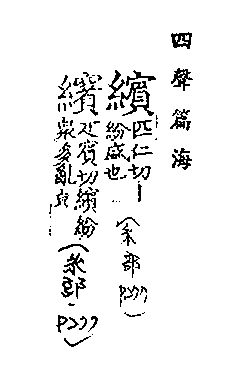 四聲篇海
繽匹仁切—
紛盛也
(糸部
P277)
繽疋賓切繽紛
眾多亂皃
(糸部
P277)